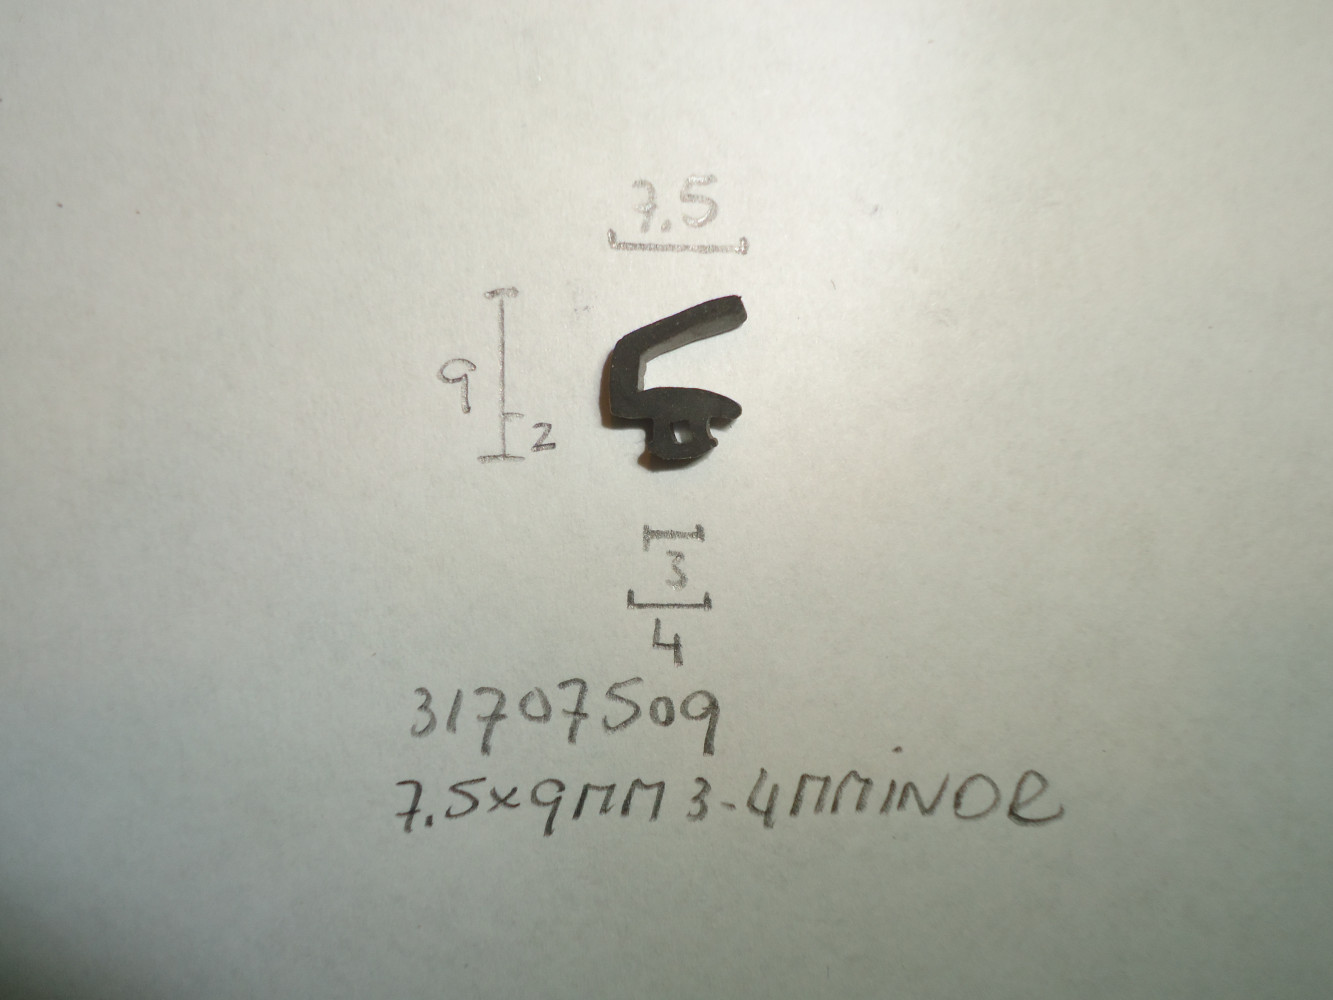 7.5
9
2
3
4
31707509
7.5x9MM 3-4MMiNOR